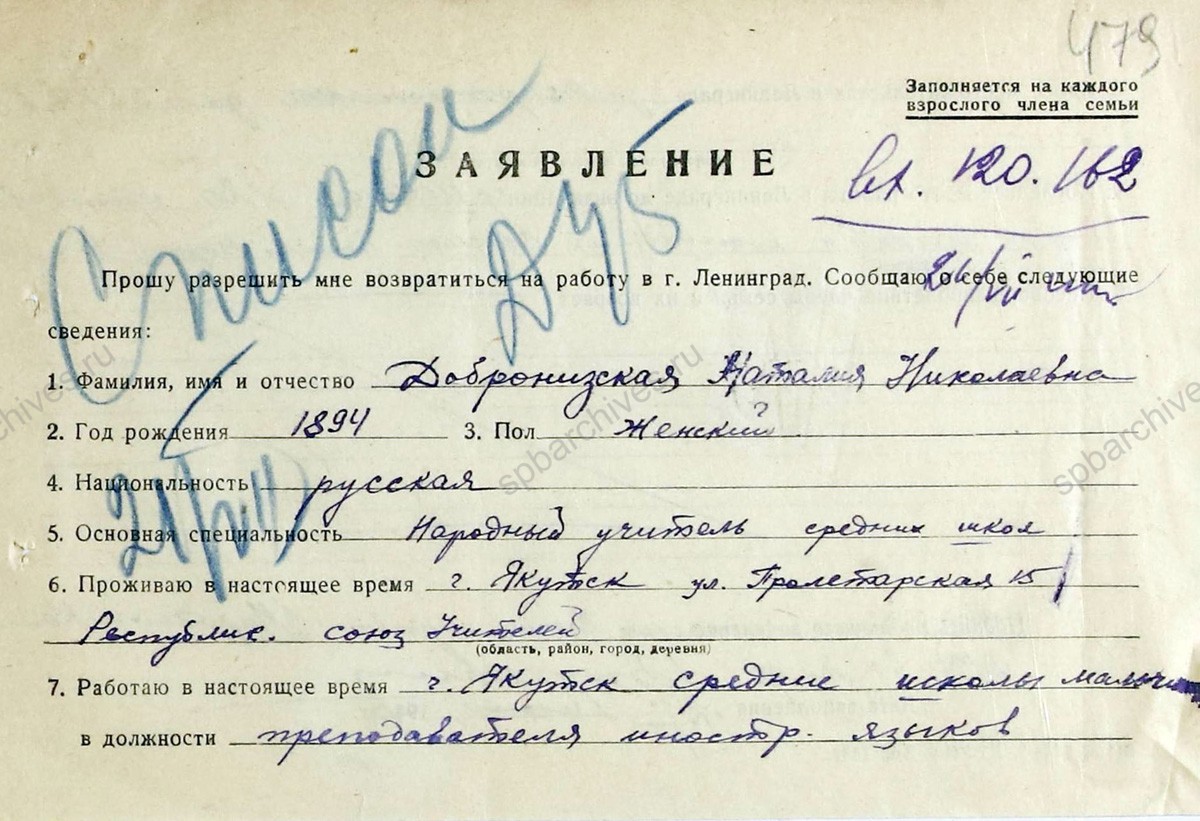 479
Заполняется на каждого
взрослого члена семьи
ЗАЯВЛЕНИЕ
вх. 120.162
Список
Дуб
Прошу разрешить мне возвратиться на работу в г. Ленинград. Сообщаю о себе следующие
сведения:
1. Фамилия, имя и отчество Добронизская Наталия Николаевна
2. Год рождения 1894 3. Пол Женский
4. Национальность русская
21/VIII
5. Основная специальность Народный учитель средних школ
6. Проживаю в настоящее время г. Якутск ул. Пролетарская 15
Республик. союз Учителей
(область, район, город, деревня)
7. Работаю в настоящее время г. Якутск средние школы
в должности преподавателя иностр. языков
spbarchives.ru
spbarchives.ru
spbarchives.ru